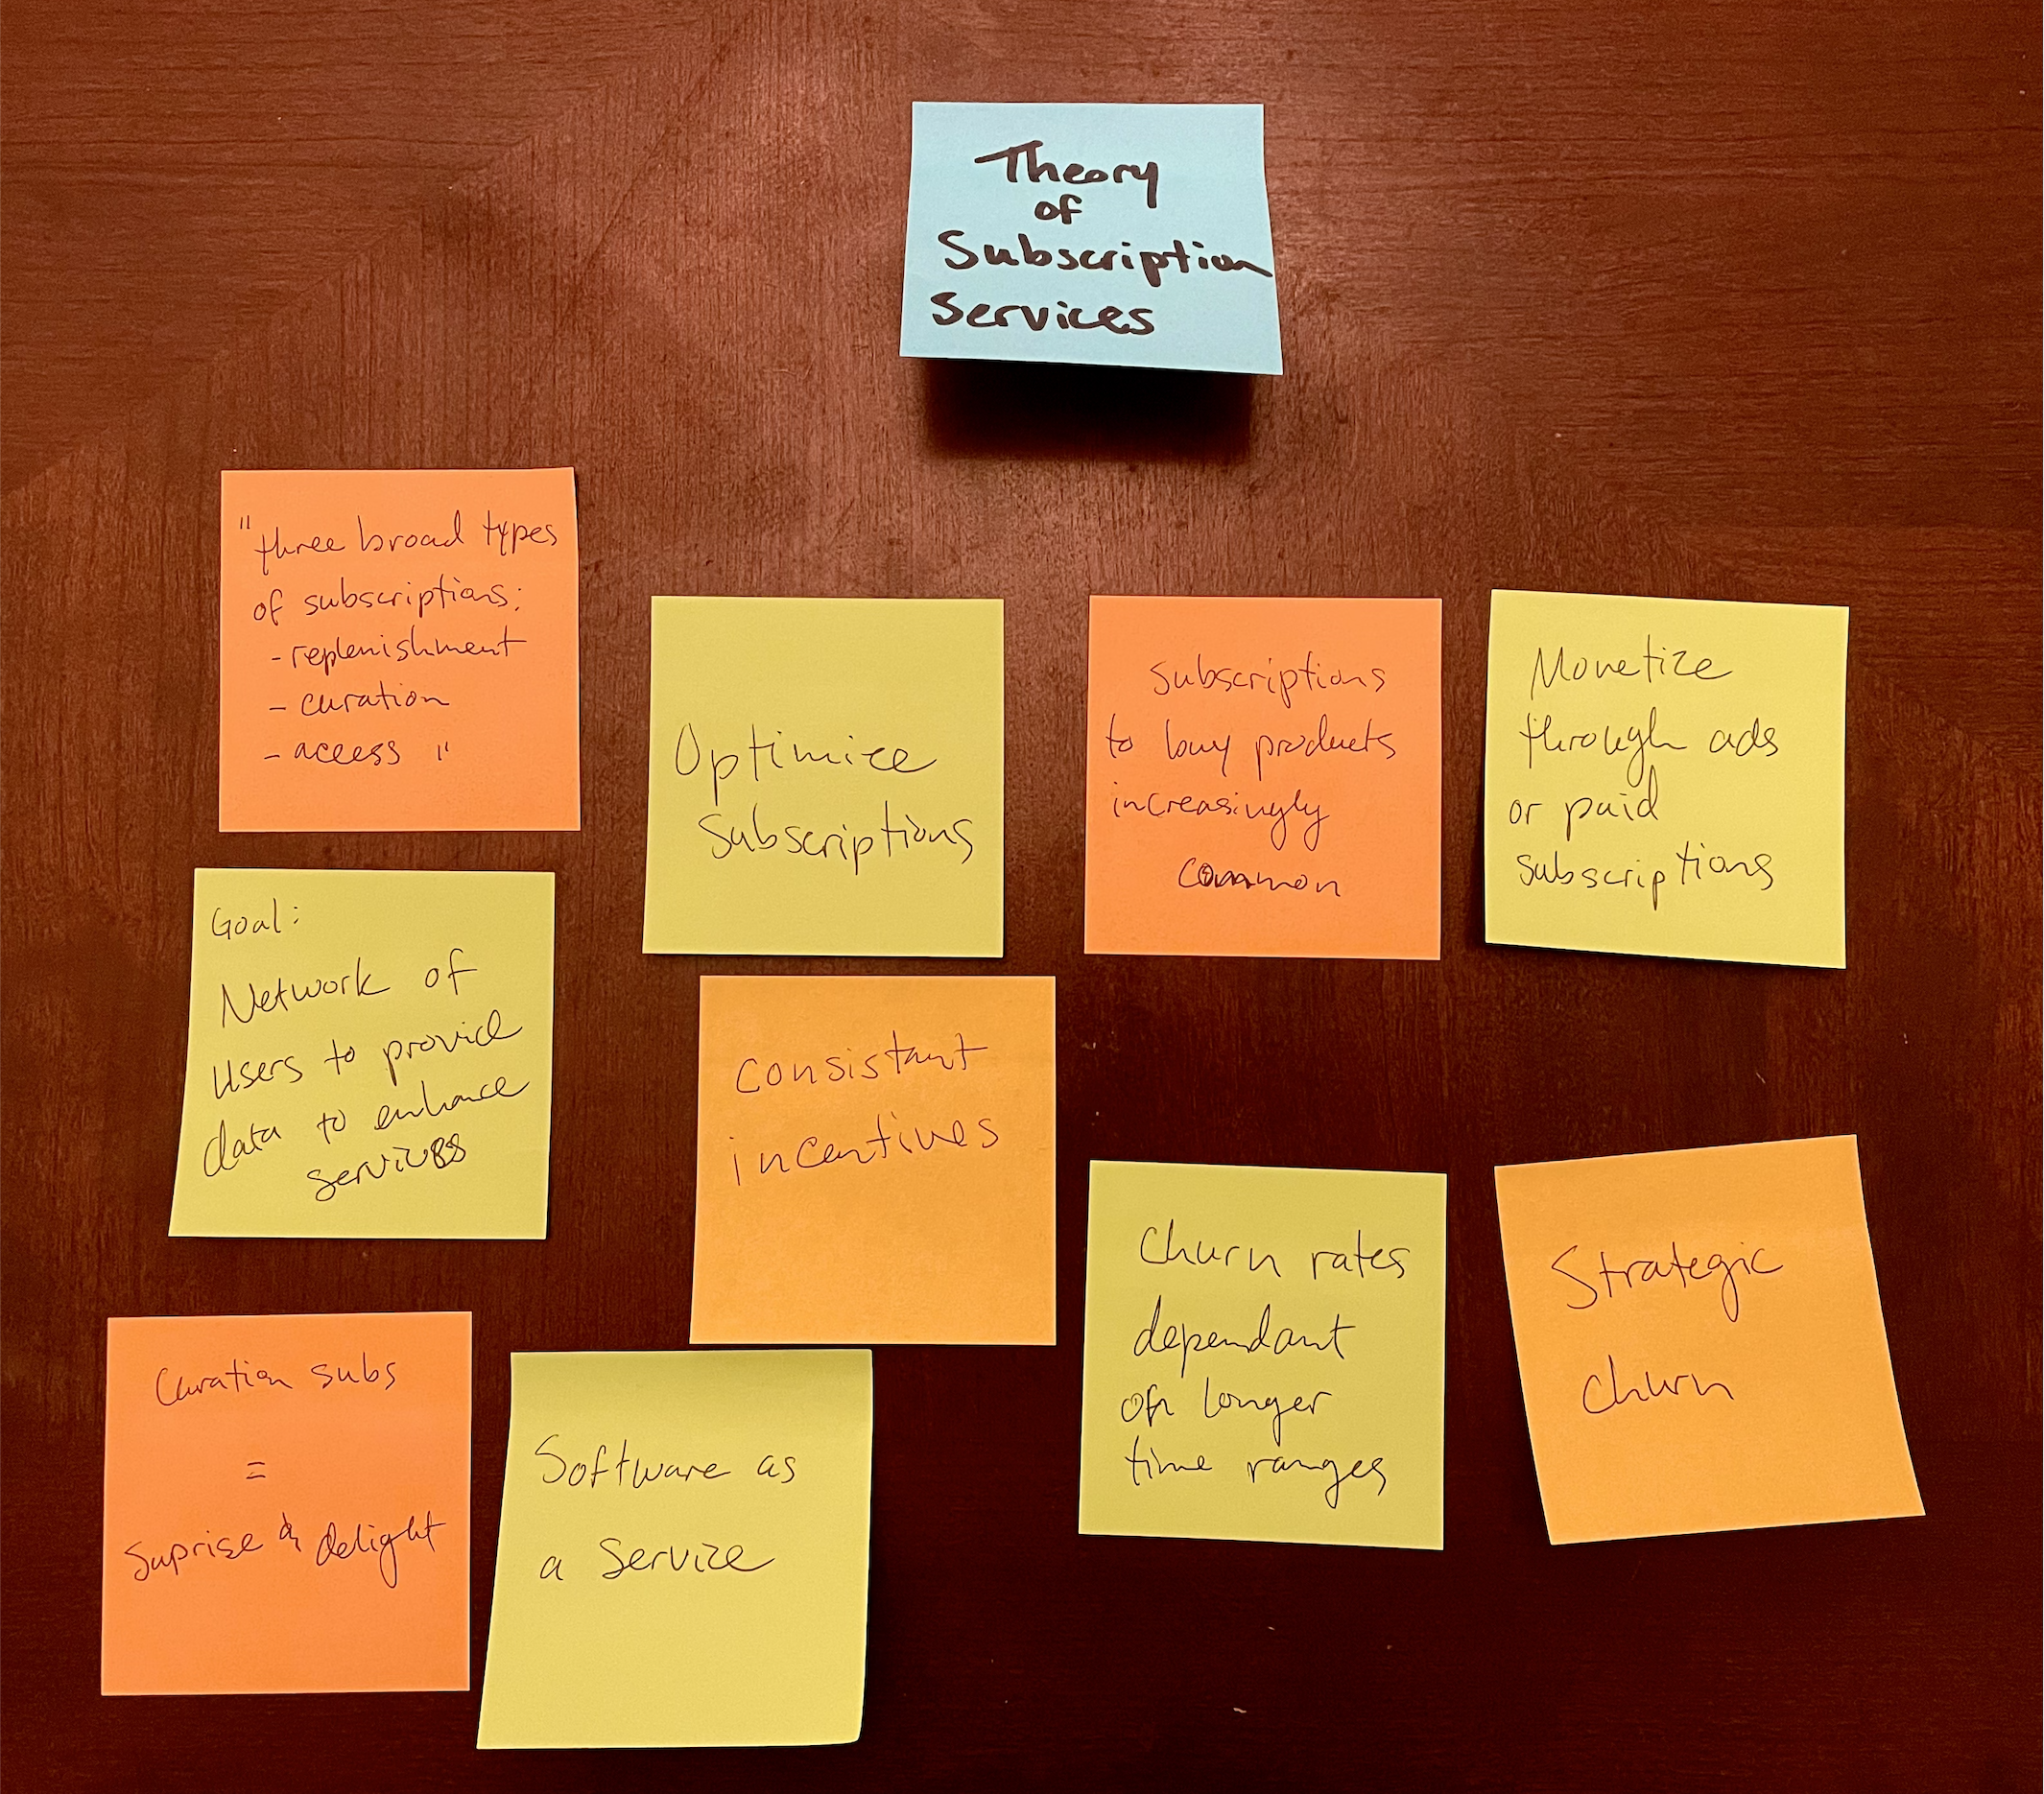 Theory
of
Subscription
Services
"three broad types
of subscriptions:
- replenishment
- curation
- access "
Optimize
Subscriptions
subscriptions
to buy products
increasingly
common
Monetize
through ads
or paid
subscriptions
Goal:
Network of
users to provide
data to enhance
services
consistant
incentives
Churn rates
dependant
on longer
time ranges
Strategic
churn
Curation subs
=
Suprise & delight
Software as
a Service